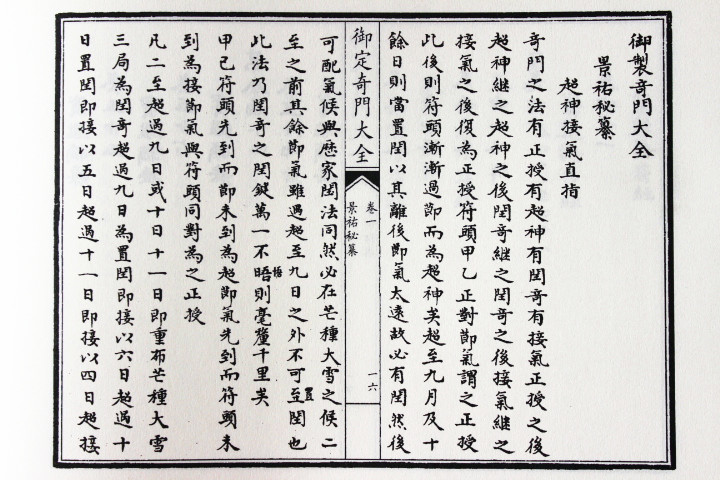 御製奇門大全
景祐秘纂
超神接氣直指
奇門之法有正授有超神有閏奇有接氣正授之後
超神繼之超神之後閏奇繼之閏奇之後接氣繼之
接氣之後復為正授符頭甲乙正對節氣謂之正授
此後則符頭漸漸過節而為超神矣超至九月及十
餘日則當置閏以其離後節氣太遠故必有閏然後
御定奇門大全
卷一
景祐秘纂
一六
可配氣候與曆家閏法同然必在芒種大雪之候二
至之前其餘節氣雖遇超至九日之外不可至置閏也
此法乃閏奇之閏鍵萬一不晤悟則毫釐千里矣
甲己符頭先到而節未到為超節氣先到而符頭未
到為接節氣與符頭同對為之正授
凡二至超過九日或十日十一日即重布芒種大雪
三局為閏奇超過九日為置閏即接以六日超過十
日置閏即接以五日超過十一日即接以四日超接